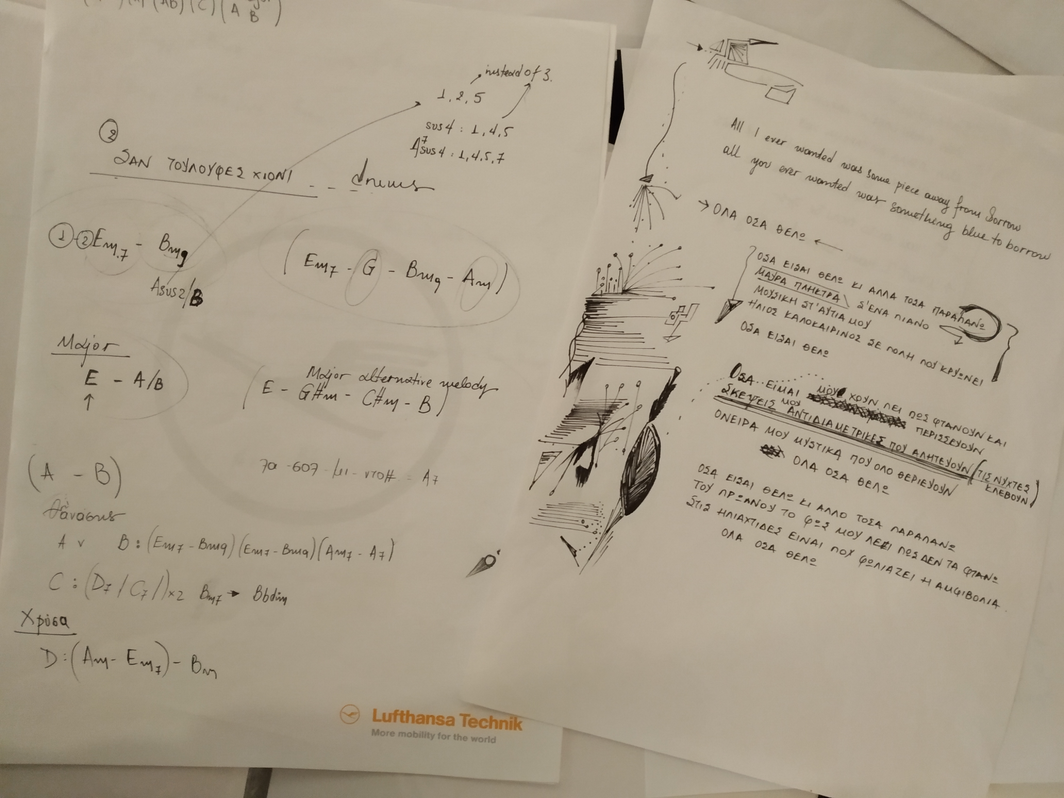 instead of 3.
1, 2, 5
sus4 : 1, 4, 5
A7sus4 : 1, 4, 5, 7
②
ΣΑΝ ΤΟΥΛΟΥΦΕΣ ΧΙΟΝΙ
①-② Em7 - Bm9
Asus2/B
(Em7 - G - Bm9 - Am)
Major
E - A/B
↑
Major alternative melody
(E - G#m - C#m - B)
(A - B)
A7
Θάνασης
A v B : (Em7 - Bm9) (Em7 - Bm9) (Am7 - A7)
C : (D7 / C7 /)x2 Bm7 → Bbdim
Χρύσα
D : (Am - Em7) - Bm
Lufthansa Technik
More mobility for the world
All I ever wanted was some piece away from sorrow
all you ever wanted was something blue to borrow
→ ΟΛΑ ΟΣΑ ΘΕΛΩ ←
ΟΣΑ ΕΙΣΑΙ ΘΕΛΩ ΚΙ ΑΛΛΑ ΤΟΣΑ ΠΑΡΑΠΑΝΩ
ΜΑΥΡΑ ΠΛΗΚΤΡΑ Σ'ΕΝΑ ΠΙΑΝΟ
ΜΟΥΣΙΚΗ ΣΤ'ΑΥΤΙΑ ΜΟΥ
ΗΛΙΟΣ ΚΑΛΟΚΑΙΡΙΝΟΣ ΣΕ ΠΟΛΗ ΠΟΥ ΚΡΥΩΝΕΙ
ΟΣΑ ΕΙΣΑΙ ΘΕΛΩ
ΟΣΑ ΕΙΜΑΙ ΜΟΥ ΧΟΥΝ ΠΕΙ ΠΩΣ ΦΤΑΝΟΥΝ ΚΑΙ
ΠΕΡΙΣΣΕΥΟΥΝ
ΣΚΕΨΕΙΣ ΜΟΥ ΑΝΤΙΔΙΑΜΕΤΡΙΚΕΣ ΠΟΥ ΑΛΗΤΕΥΟΥΝ (ΤΙΣ ΝΥΧΤΕΣ
ΚΛΕΒΟΥΝ)
ΟΝΕΙΡΑ ΜΟΥ ΜΥΣΤΙΚΑ ΠΟΥ ΟΛΟ ΘΕΡΙΕΥΟΥΝ
ΟΛΑ ΟΣΑ ΘΕΛΩ
ΟΣΑ ΕΙΣΑΙ ΘΕΛΩ ΚΙ ΑΛΛΟ ΤΟΣΑ ΠΑΡΑΠΑΝΩ
ΤΟΥ ΠΡΩΙΝΟΥ ΤΟ ΦΩΣ ΜΟΥ ΛΕΕΙ ΠΩΣ ΔΕΝ ΤΑ ΦΤΑΝΩ
ΣΤΙΣ ΗΛΙΑΧΤΙΔΕΣ ΕΙΝΑΙ ΠΟΥ ΦΩΛΙΑΖΕΙ Η ΑΜΦΙΒΟΛΙΑ
ΟΛΑ ΟΣΑ ΘΕΛΩ